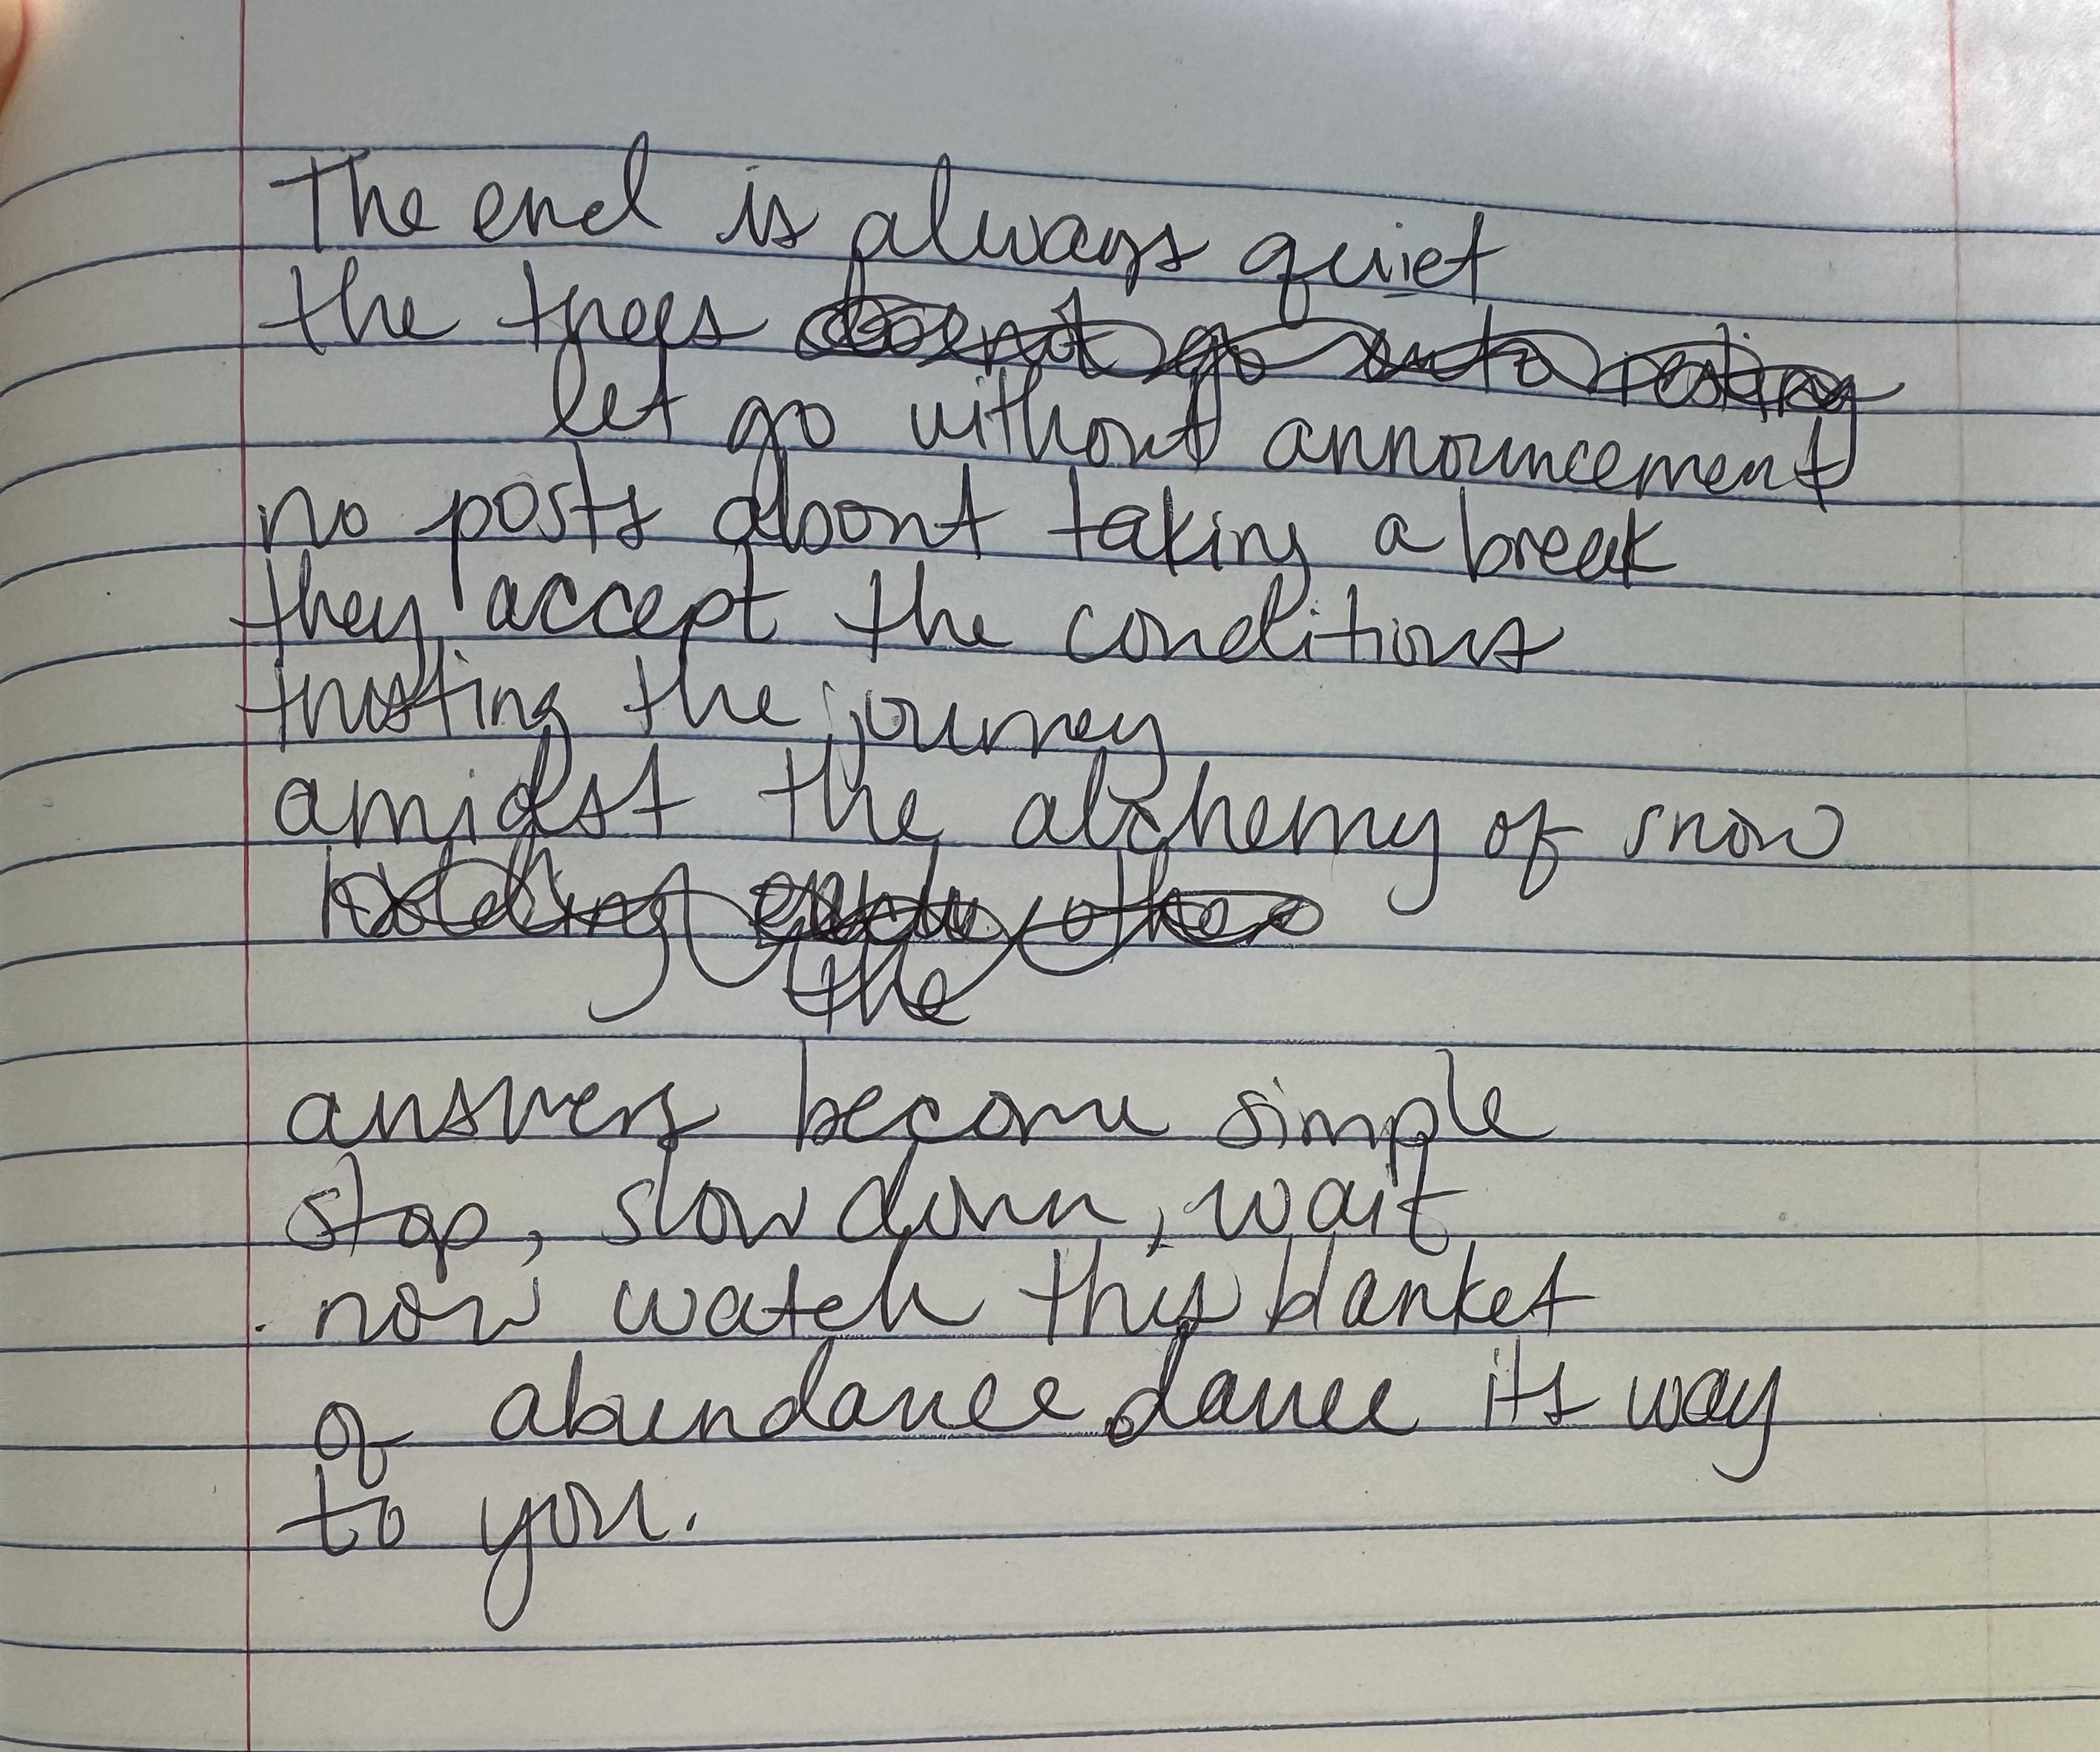 The end is always quiet
the trees
let go without announcement
no posts about taking a break
they accept the conditions
trusting the journey
amidst the alchemy of snow
holding
the
answers become simple
stop, slow down, wait
now watch this blanket
of abundance dance its way
to you.